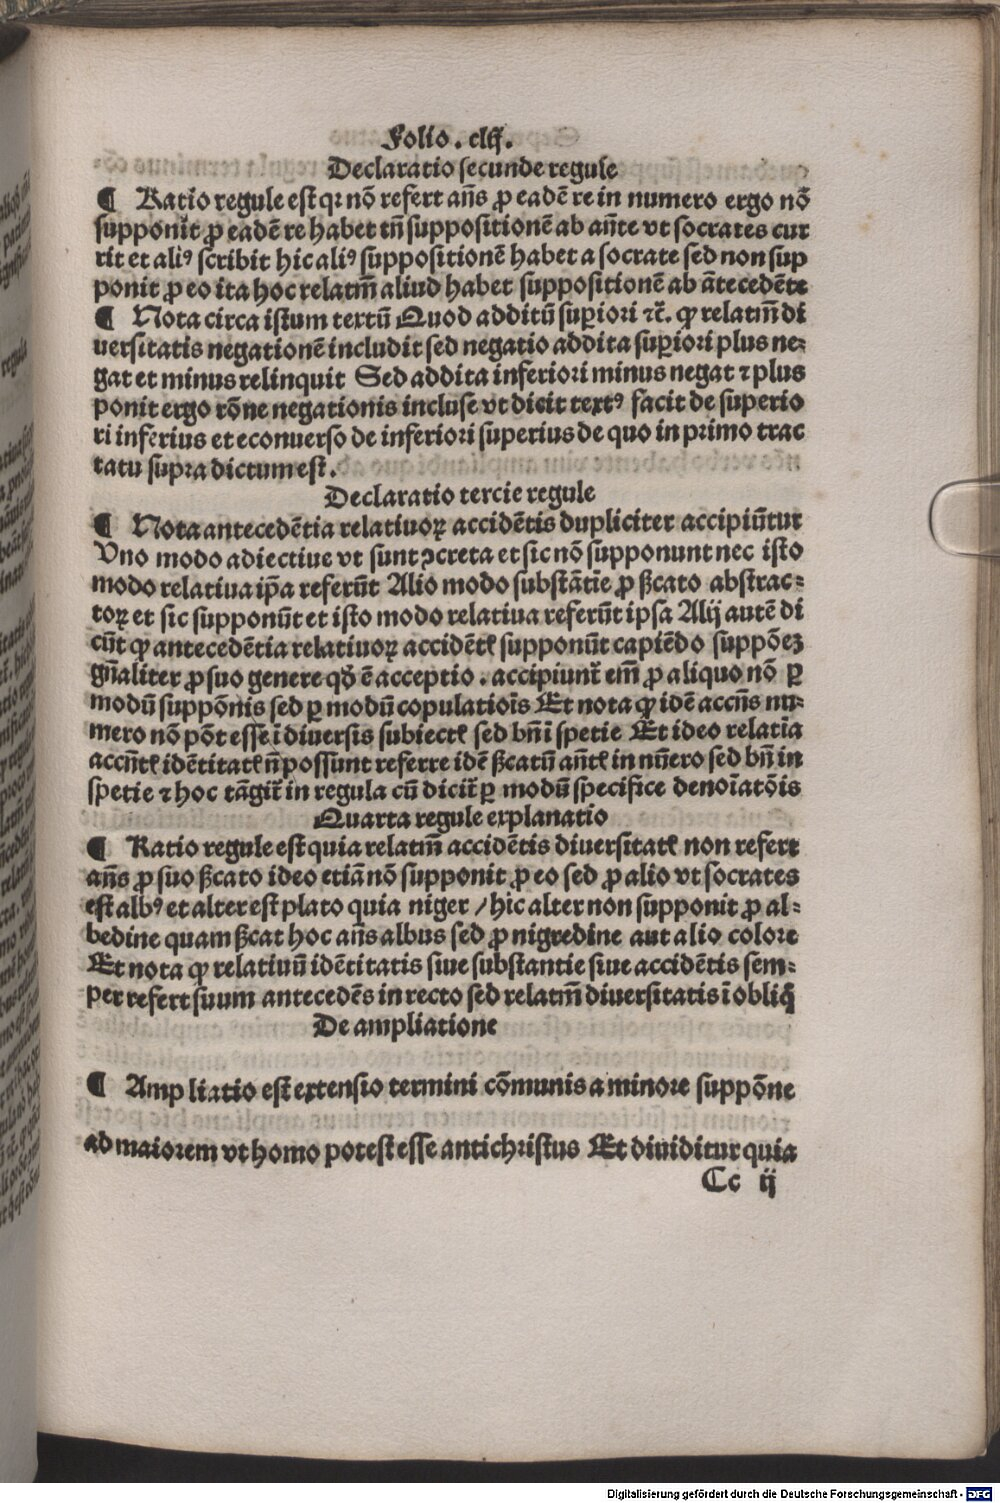 Folio. clij.
Declaratio secunde regule
¶ Ratio regule est qꝛ nō refert añs ꝓ eadē re in numero ergo nō
supponit̃ ꝓ eadē re habet tñ suppositionē ab añte vt socrates cur
rit et aliꝰ scribit hic aliꝰ suppositionē habet a socrate sed non sup
ponit ꝓ eo ita hoc relatiṽ aliud habet suppositionē ab ātecedēte
¶ Nota circa istum textū Quod additū suꝑiori ⁊c̃. ꝙ relatiṽ di
uersitatis negationē includit sed negatio addita suꝑiori plus ne⸗
gat et minus relinquit Sed addita inferiori minus negat ⁊ plus
ponit ergo rōne negationis incluse vt dicit textꝰ facit de superio
ri inferius et econuerso de inferiori superius de quo in primo trac
tatu supra dictum est.
Declaratio tercie regule
¶ Nota antecedētia relatiuoꝝ accidētis dupliciter accipiūtur
Vno modo adiectiue vt sunt ꝯcreta et sic nō supponunt nec isto
modo relatiua ip̄a referūt Alio modo substātiē ꝓ ßcato abstrac⸗
toꝝ et sic supponūt et isto modo relatiua referūt ipsa Alij autē di
cūt ꝙ antecedētia relatiuoꝝ accidētꝭ supponūt capiēdo suppōeꝫ
gñaliter ꝓ suo genere qd̓ ē acceptio. accipiunt̃ em̄ ꝓ aliquo nō ꝑ
modū suppōnis sed ꝑ modū copulatiōis Et nota ꝙ idē accñs nu⸗
mero nō pōt esse ī diuersis subiectꝭ sed bñ ī spetie Et ideo relatīa
accñtꝭ idētitatꝭ ñ possunt referre idē ßcatū añtꝭ in nūero sed bñ in
spetie ⁊ hoc tāgit̃ in regula cū dicit̃ ꝑ modū specifice denoīatōis
Quarta regule explanatio
¶ Ratio regule est quia relatiṽ accidētis diuersitatꝭ non refert
añs ꝓ suo ßcato ideo etiā nō supponit ꝓ eo sed ꝓ alio vt socrates
est albꝰ et alter est plato quia niger / hic alter non supponit ꝓ al⸗
bedine quam ßcat hoc añs albus sed ꝓ nigredine aut alio colore
Et nota ꝙ relatiuū idētitatis siue substantie siue accidētis sem⸗
per refert suum antecedēs in recto sed relatiṽ diuersitatis ī obliq̄
De ampliatione
¶ Ampliatio est extensio termini cōmunis a minore suppōne
ad maiorem vt homo potest esse antichristus Et diuiditur quia
Cc ij
Digitalisierung gefördert durch die Deutsche Forschungsgemeinschaft - DFG